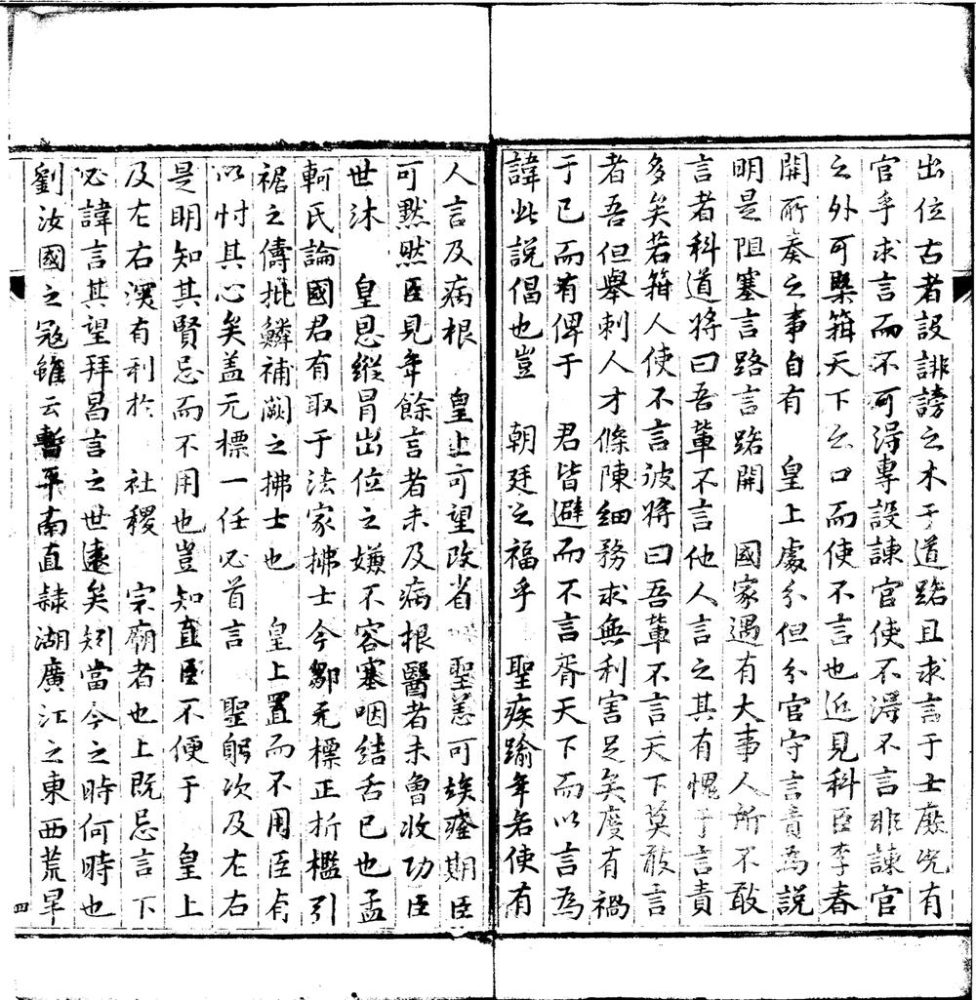 出位古者設誹謗之木于道路且求言于士庶况有
官乎求言而不可淂專設諫官使不淂不言非諫官
之外可槩箝天下之口而使不言也近見科臣李春
開所奏之事自有　皇上處分但分官守言責為說
明是阻塞言路言路開　國家遇有大事人所不敢
言者科道將曰吾軰不言他人言之其有愧于言責
多矣若箝人使不言彼將曰吾軰不言天下莫敢言
者吾但舉刺人才條陳細務求無利害足矣度有禍
于已而有俾于　君皆避而不言胥天下而以言為
諱此說倡也豈　朝廷之福乎　聖疾踰年若使有
人言及病根　皇上可望改省　聖恙可竢瘥期臣
可黙黙臣見年餘言者未及病根醫者未曾收功臣
世沐　皇恩縱冒出位之嫌不容塞咽結舌已也孟
軻氏論國君有取于法家拂士今鄒元標正折檻引
裾之儔批鱗補闕之拂士也　皇上置而不用臣有
以忖其心矣盖元標一任必首言　聖躬次及左右
是明知其賢忌而不用也豈知直臣不便于　皇上
及左右漠有利於　社稷　宗廟者也上既忌言下
必諱言其望拜昌言之世遠矣矧當今之時何時也
劉汝國之冦雖云暫平南直隷湖廣江之東西荒旱
四